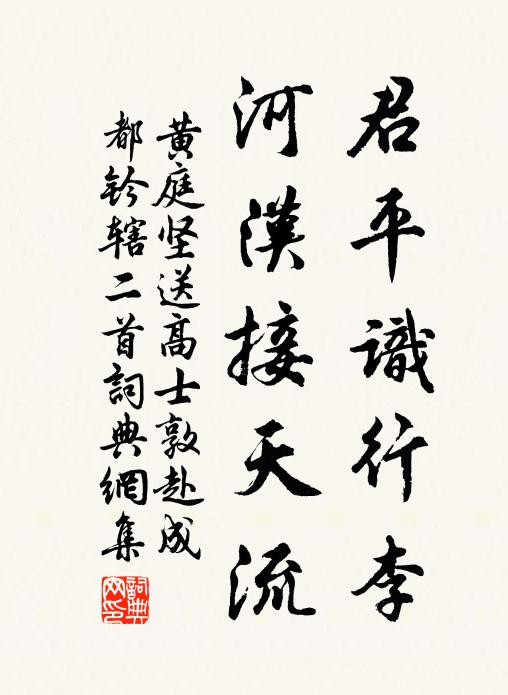 君平識行李
河漢接天流
黄庭坚送高士敦赴成
都鈐辖二首詞典網集
詞典
网印